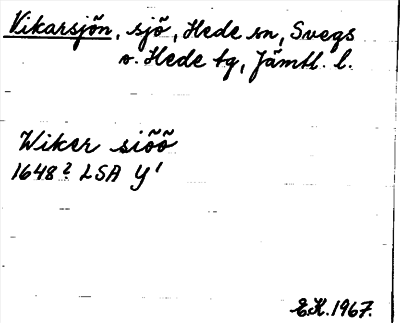 Vikarsjön, sjö, Hede sn, Svegs
o. Hede tg, Jämtl. l.
Wiker siöö
1648? LSA Y¹
E.H. 1967.